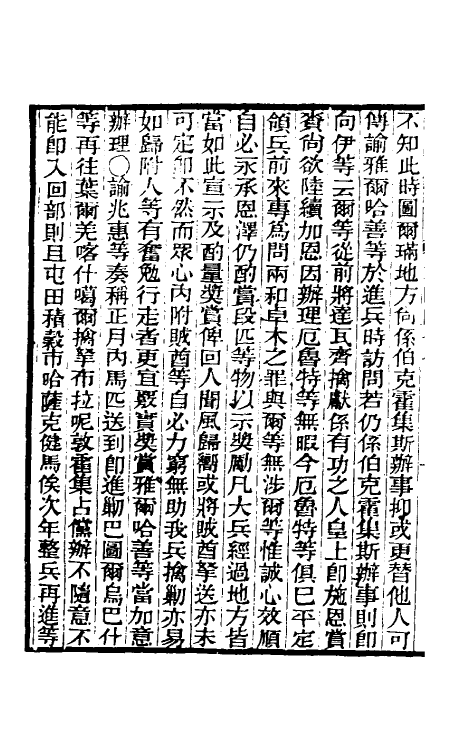 不知此時圖爾璊地方尙係伯克霍集斯辦事抑或更替他人可
傳諭雅爾哈善等於進兵時訪問若仍係伯克霍集斯辦事則卽
向伊等云爾等從前將達瓦齊擒獻係有功之人皇上卽施恩賞
賚尙欲陸續加恩因辦理厄魯特等無暇今厄魯特等俱已平定
領兵前來專爲問兩和卓木之罪與爾等無涉爾等惟誠心效順
自必永承恩澤仍酌賞段匹等物以示獎勵凡大兵經過地方皆
當如此宣示及酌量獎賞俾回人聞風歸嚮或將賊酋拏送亦未
可定卽不然而眾心內附賊酋等自必力窮無助我兵擒勦亦易
如歸附人等有奮勉行走者更宜覈實獎賞雅爾哈善等當加意
辦理〇諭兆惠等奏稱正月內馬匹送到卽進勦巴圖爾烏巴什
等再往葉爾羌喀什噶爾擒拏布拉呢敦霍集占儻辦不隨意不
能卽入回部則且屯田積穀市哈薩克健馬俟次年整兵再進等